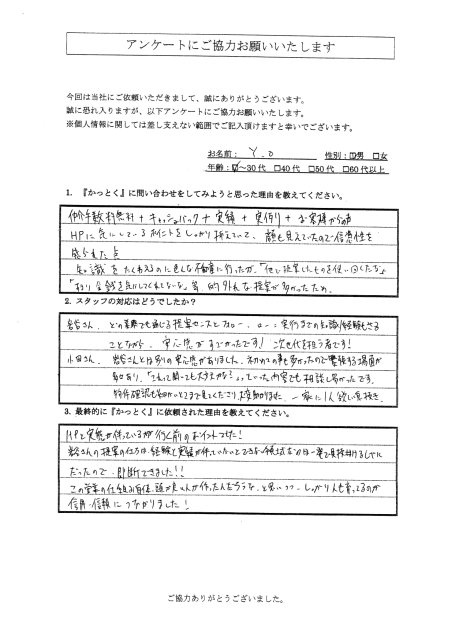 アンケートにご協力お願いいたします
今回は当社にご依頼いただきまして、誠にありがとうございます。
誠に恐れ入りますが、以下アンケートにご協力お願いいたします。
※個人情報に関しては差し支えない範囲でご記入頂けますと幸いでございます。
お名前： Y.O 性別：☑男 □女
年齢：☑～30代 □40代 □50代 □60代以上
1. 『かっとく』に問い合わせをしてみようと思った理由を教えてください。
仲介手数料無料 + キャッシュバック + 実績 + 実例 + お客様からの声
HPに気にしているポイントをしっかり抑えていて、顔も見えていたので信憑性を
感じれた点
知識をたくわえるのに色んな不動産に行ったが、「
的外れな提案が多かったため。
2. スタッフの対応はどうでしたか？
岩谷さん、どの業界でも通じる提案センスとフォロー、
ことながら、安心感がすごかったです！ 次世代を担う者です！
小田さん 岩谷さんとは別の安心感がありました。初めての事も多かったので緊張する場面が
多々あり、「これって聞いても大丈夫かな？」っていった内容でも相談し易かったです。
物件確認も細かいところまで見てくださり大変助かりました。
3. 最終的に『かっとく』に依頼された理由を教えてください。
HPで実態が伴っているかが行く前のポイントでした！
岩谷さんの提案の仕方は経験と実績が伴っていないとできない領域
だったので、即断できました！！
この営業の仕組み自体、頭が良い人が作ったんだろうな、と思いつつ、しっかり人も育ってるのが
信用・信頼につながりました！
ご協力ありがとうございました。